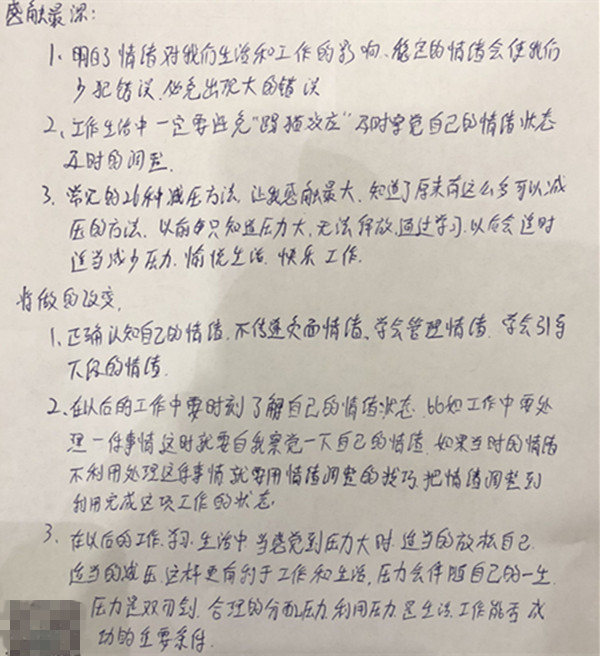 感触最深:
1. 明白了情绪对我们生活和工作的影响、稳定的情绪会使我们
少犯错误、避免出现大的错误
2、工作生活中一定要避免"踢猫效应"及时察觉自己的情绪状态
及时的调整.
3. 常见的26种减压方法、让我感触最大、知道了原来有这么多可以减
压的方法、以前只知道压力大、无法释放、通过学习、以后会适时
适当减少压力、愉悦生活、快乐工作.
将做的改变.
1. 正确认知自己的情绪、不传递负面情绪、学会管理情绪、学会引导
下级的情绪.
2. 在以后的工作中要时刻了解自己的情绪状态、比如工作中要处
理一件事情、这时就要自我察觉一下自己的情绪、如果当时的情绪
不利用处理这件事情、就要用情绪调整的技巧、把情绪调整到
利用完成这项工作的状态.
3. 在以后的工作、学习、生活中、当感觉到压力大时、适当的放松自己.
适当的减压、这样更有利于工作和生活、压力会伴随自己的一生.
压力是双刃剑、合理的分配压力、利用压力是生活、工作能否成
功的主要条件.